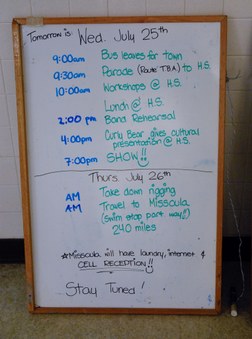 Tomorrow is: Wed. July 25th
9:00am Bus leaves for town
9:30am Parade (Route T.B.A.) to H.S.
10:00am Workshops @ H.S.
Lunch @ H.S.
2:00 pm Band Rehearsal
4:00pm Curly Bear gives cultural
presentation @ H.S.
7:00pm SHOW!!
Thurs July 26th
AM Take down rigging
AM Travel to Missoula
(swim stop part way!!)
240 miles
*Missoula will have laundry, internet &
CELL RECEPTION!!
Stay Tuned!